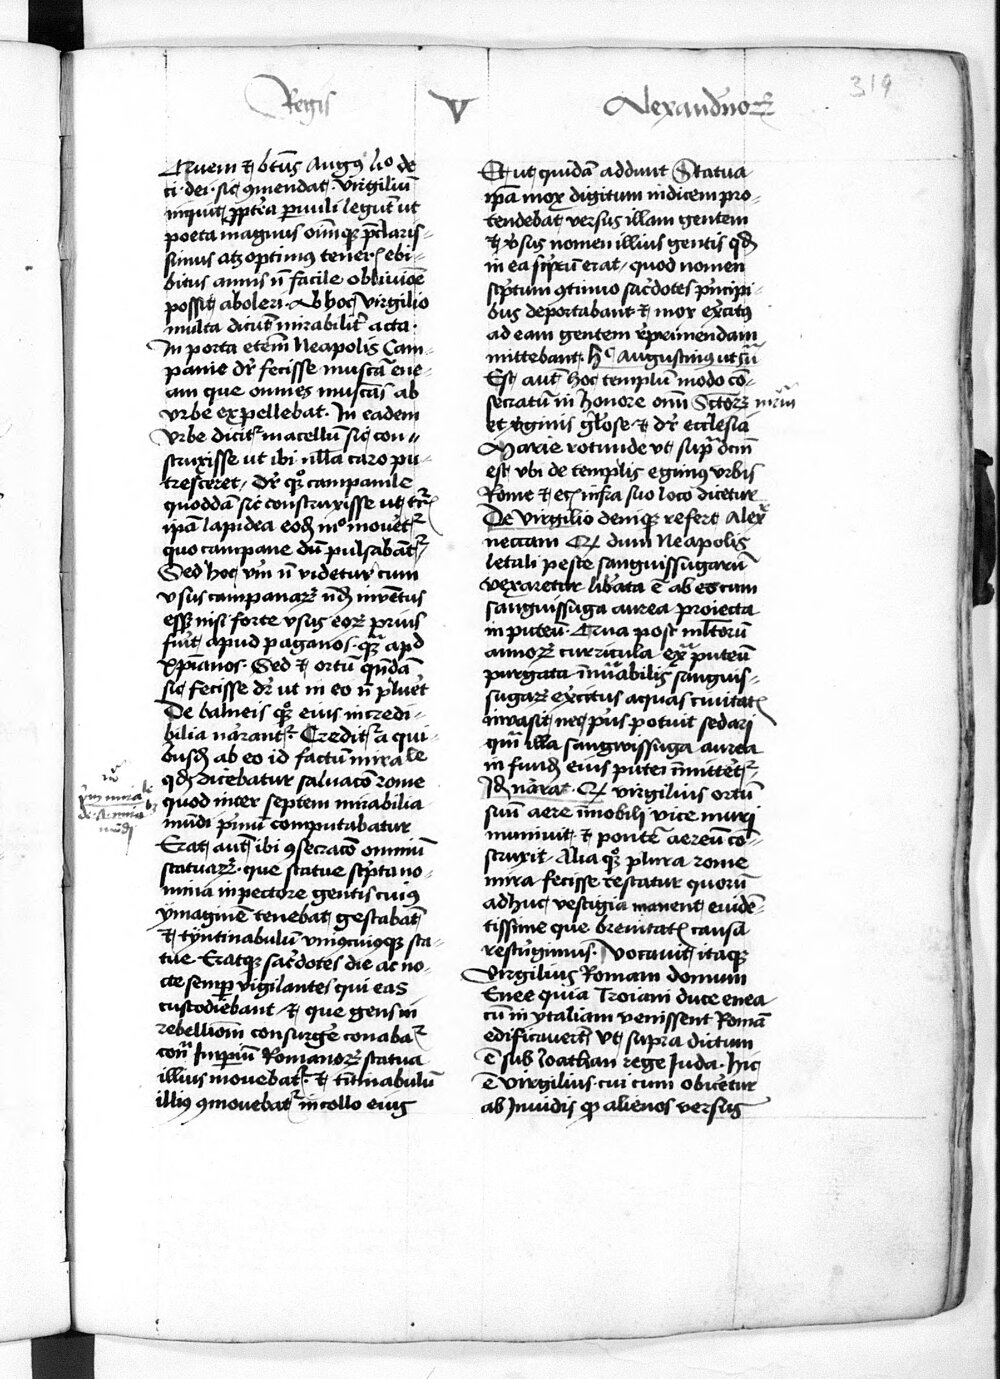 Regis V Alexandrinorꝝ
319
Quem et btūs Augꝰ lio de
ci. dei. sic ꝯmendat. Virgiliū
inquit ꝓptea pueuli legūt ut
poeta magnus oīmqꝫ p̄claris-
simus atqꝫ optimꝰ teneris ebi-
bitus annis n̄ facile obliuiōe
possit aboleri. Ab hoc Virgilio
multa dicūt mirabiliter acta.
In porta etem Neapolis Cam-
panie dr̄ fecisse muscā ene-
am que omnes muscas ab
vrbe expellebat. In eadem
vrbe dicitr macellū sic con-
struxisse ut ibi nulla caro pu-
tresceret. Dr̄ qꝫ campanile
quoddā sic construxisse ut tr̄
ipam lapidea eodē mō mouetr
quo campane dū pulsabātr
Sed hoc vm̄ n̄ videtur cum
vsus campanarꝝ nōdū inuētus
esset nisi forte vsus eorꝝ prius
fuit apud paganos. qꝫ apd
xp̄ianos. Sed et ortū quēdā
sic fecisse dr̄ ut in eo n̄ pluet
De balneis qꝫ eius incredi-
bilia narantr. Creditr a qui-
busdā ab eo id factū mirale
qd̄ dicebatur saluacō rome
quod inter septem mirabilia
mūdi p̄mū computabatur
Erat autē ibi ꝯsecracō omniū
statuarꝝ. que statue scpta no-
mina in pectore gentis cuiꝰ
ymaginē tenebat gestabāt
et tyntinabulū vniꝰcuiusqꝫ sta-
tue. Eratqꝫ sacdotes die ac no-
cte semp vigilantes qui eas
custodiebant et que gens in
rebellionē consurgē conabar
contra Imperiū Romanorꝝ statua
illius mouebatr et titinabulū
illiꝰ ꝯmouebatr in collo eius
Et ut quidā addunt Statua
ipā mox digitum indicem pro-
tendebat versus illam gentem
et vsus nomen illius gentis qd̄
in ea scptū erat. quod nomen
scptum ꝯtinuo sacdotes pncipi-
bus deportabant et mox excitꝰ
ad eam gentem repmendam
mittebant. hc Augustinꝰ ut sū
Est autē hoc templū modo cō-
secratū in honore omī Sctorꝝ mrm
et virginis gliose. et dr̄ ecclesia
Marie rotunde ut supra dcm
est vbi de templis egimus vrbis
Rome et etc infra suo loco dicetur
De Virgilio deniqꝫ refert Alex
neccam Qd dum Neapolis
letali peste sanguissugarū
vexaretur libata ē ab eo cum
sanguissuga aurea proiecta
in puteū. Qua post mltorū
annorꝝ curricula exa puteū
purgata inūabilis sanguis-
sugarꝝ excitus aquas ciuitatis
inuasit nec pius potuit sedari
qm̄ illa sangwissuga aurea
in fundū eius putei imittetr.
Idē narat. Qd virgilius ortū
suū aere imobili vice muri
muniuit et pontē aereū cō-
struxit. Alia qꝫ plura rome
mira fecisse testatur quorū
adhuc vestigia manent euidē-
tissime que breuitatis causa
restrigimus. Vocauit itaqꝫ
Virgilius Romam domum
Enee quia Troiani duce enea
cū in ytaliam venissent Romā
edificauert vt supra dictum
ē sub Joathan rege Juda. hic
ē virgilius cui cum obicetur
ab Inuidis qd alienos versus